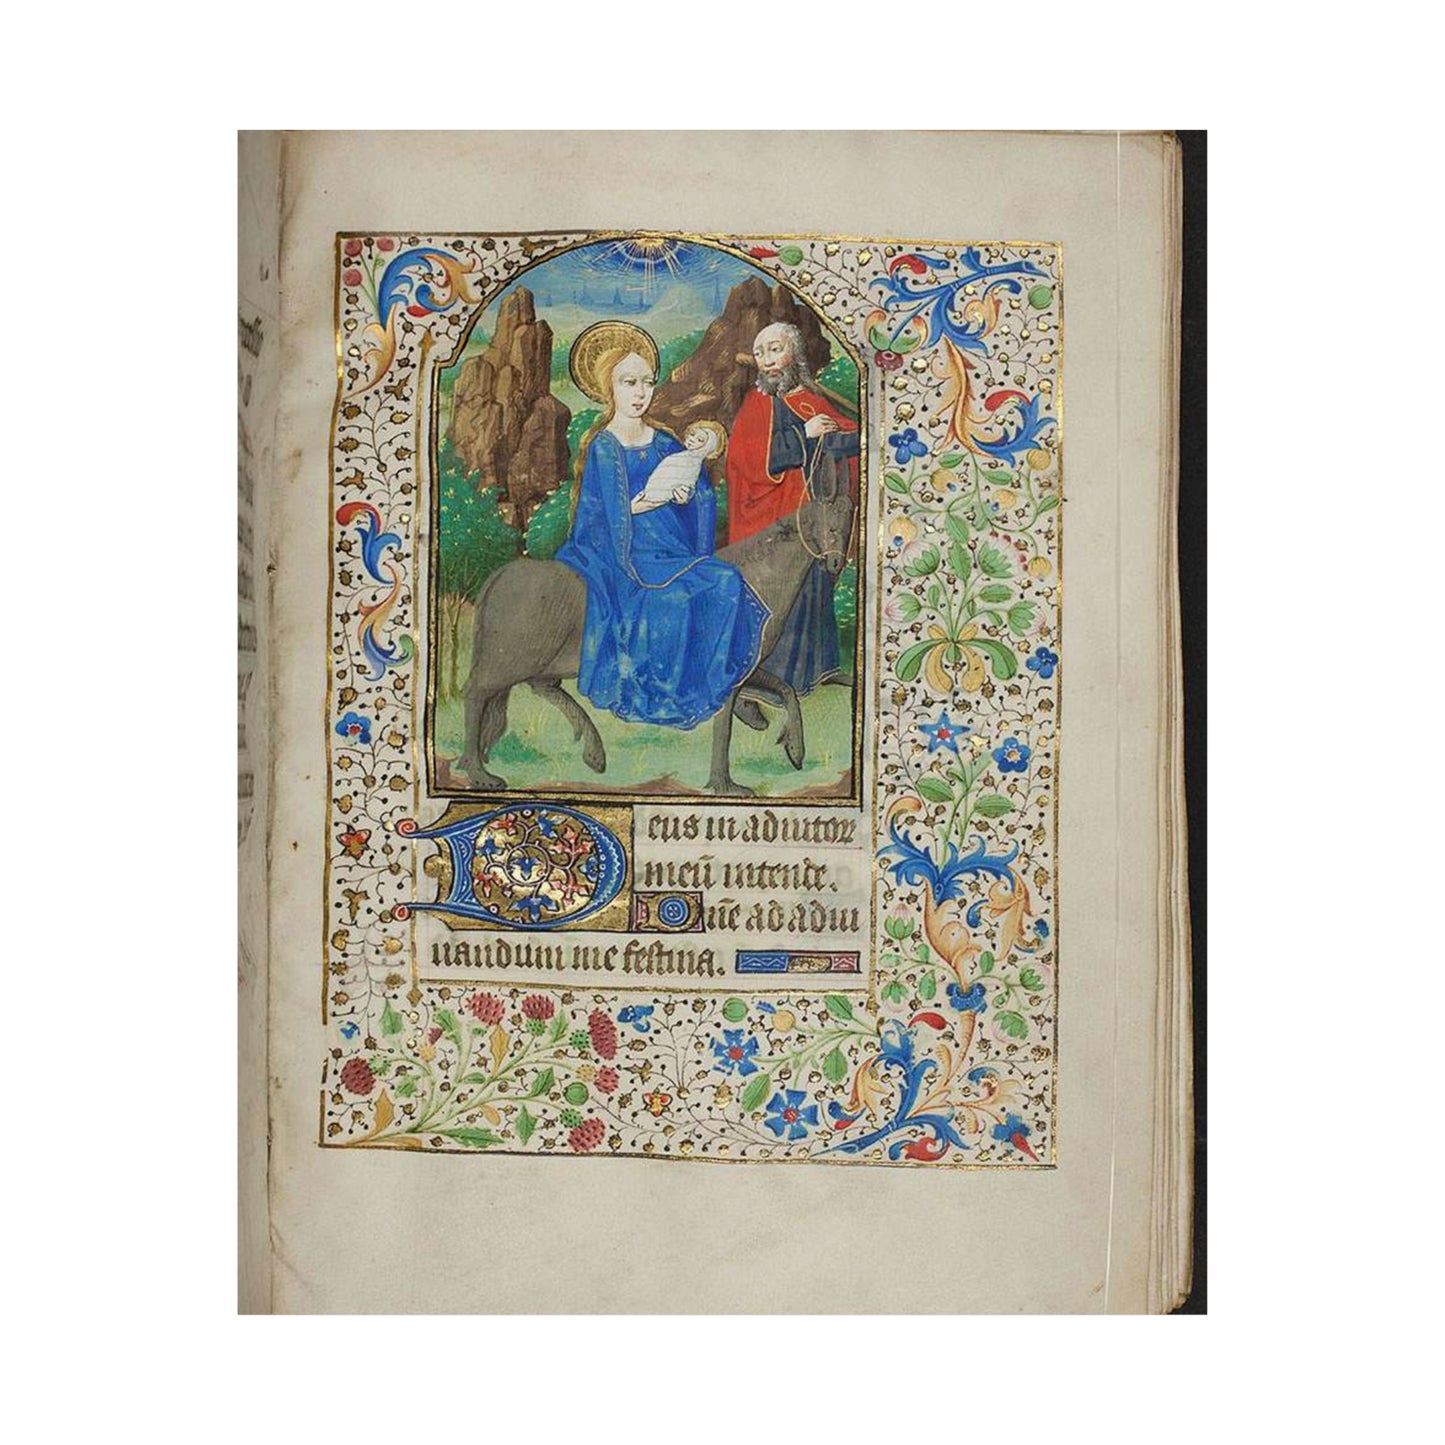 Deus in adiutor
meū intende.
Dñe ad adiu
uandum me festina.